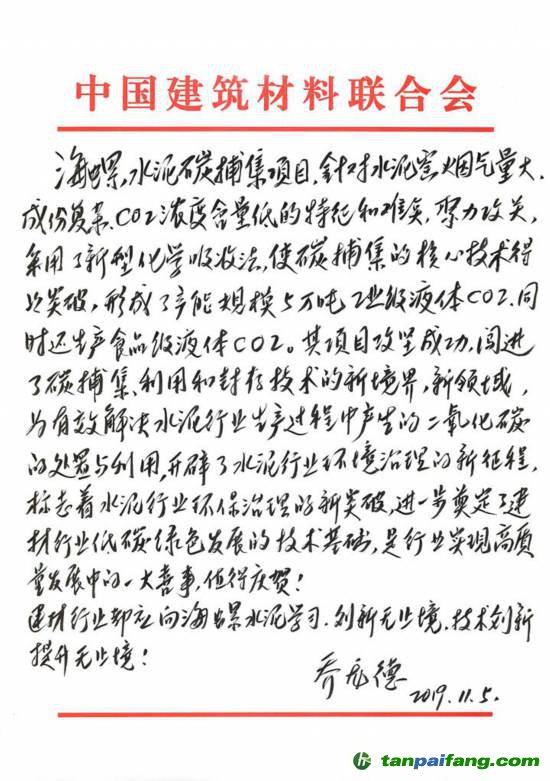 中国建筑材料联合会
海螺,水泥碳捕集项目,针对水泥窑烟气量大、
成份复杂、CO2浓度含量低的特征和难关,聚力攻关,
采用了新型化学吸收法,使碳捕集的核心技术得
以突破,形成了产能规模5万吨工业级液体CO2.同
时还生产食品级液体CO2。其项目攻坚成功,闯进
了碳捕集、利用和封存技术的新境界,新领域,
为有效解决水泥行业生产过程中产生的二氧化碳
的处置与利用,开辟了水泥行业环境治理的新征程,
标志着水泥行业环保治理的新突破,进一步奠定了建
材行业低碳绿色发展的技术基础,是行业实现高质
量发展中的一大喜事,值得庆贺!
建材行业都应向海螺水泥学习.创新无止境.技术创新
提升无止境!
乔龙德
2019.11.5.
tanpaifang.com